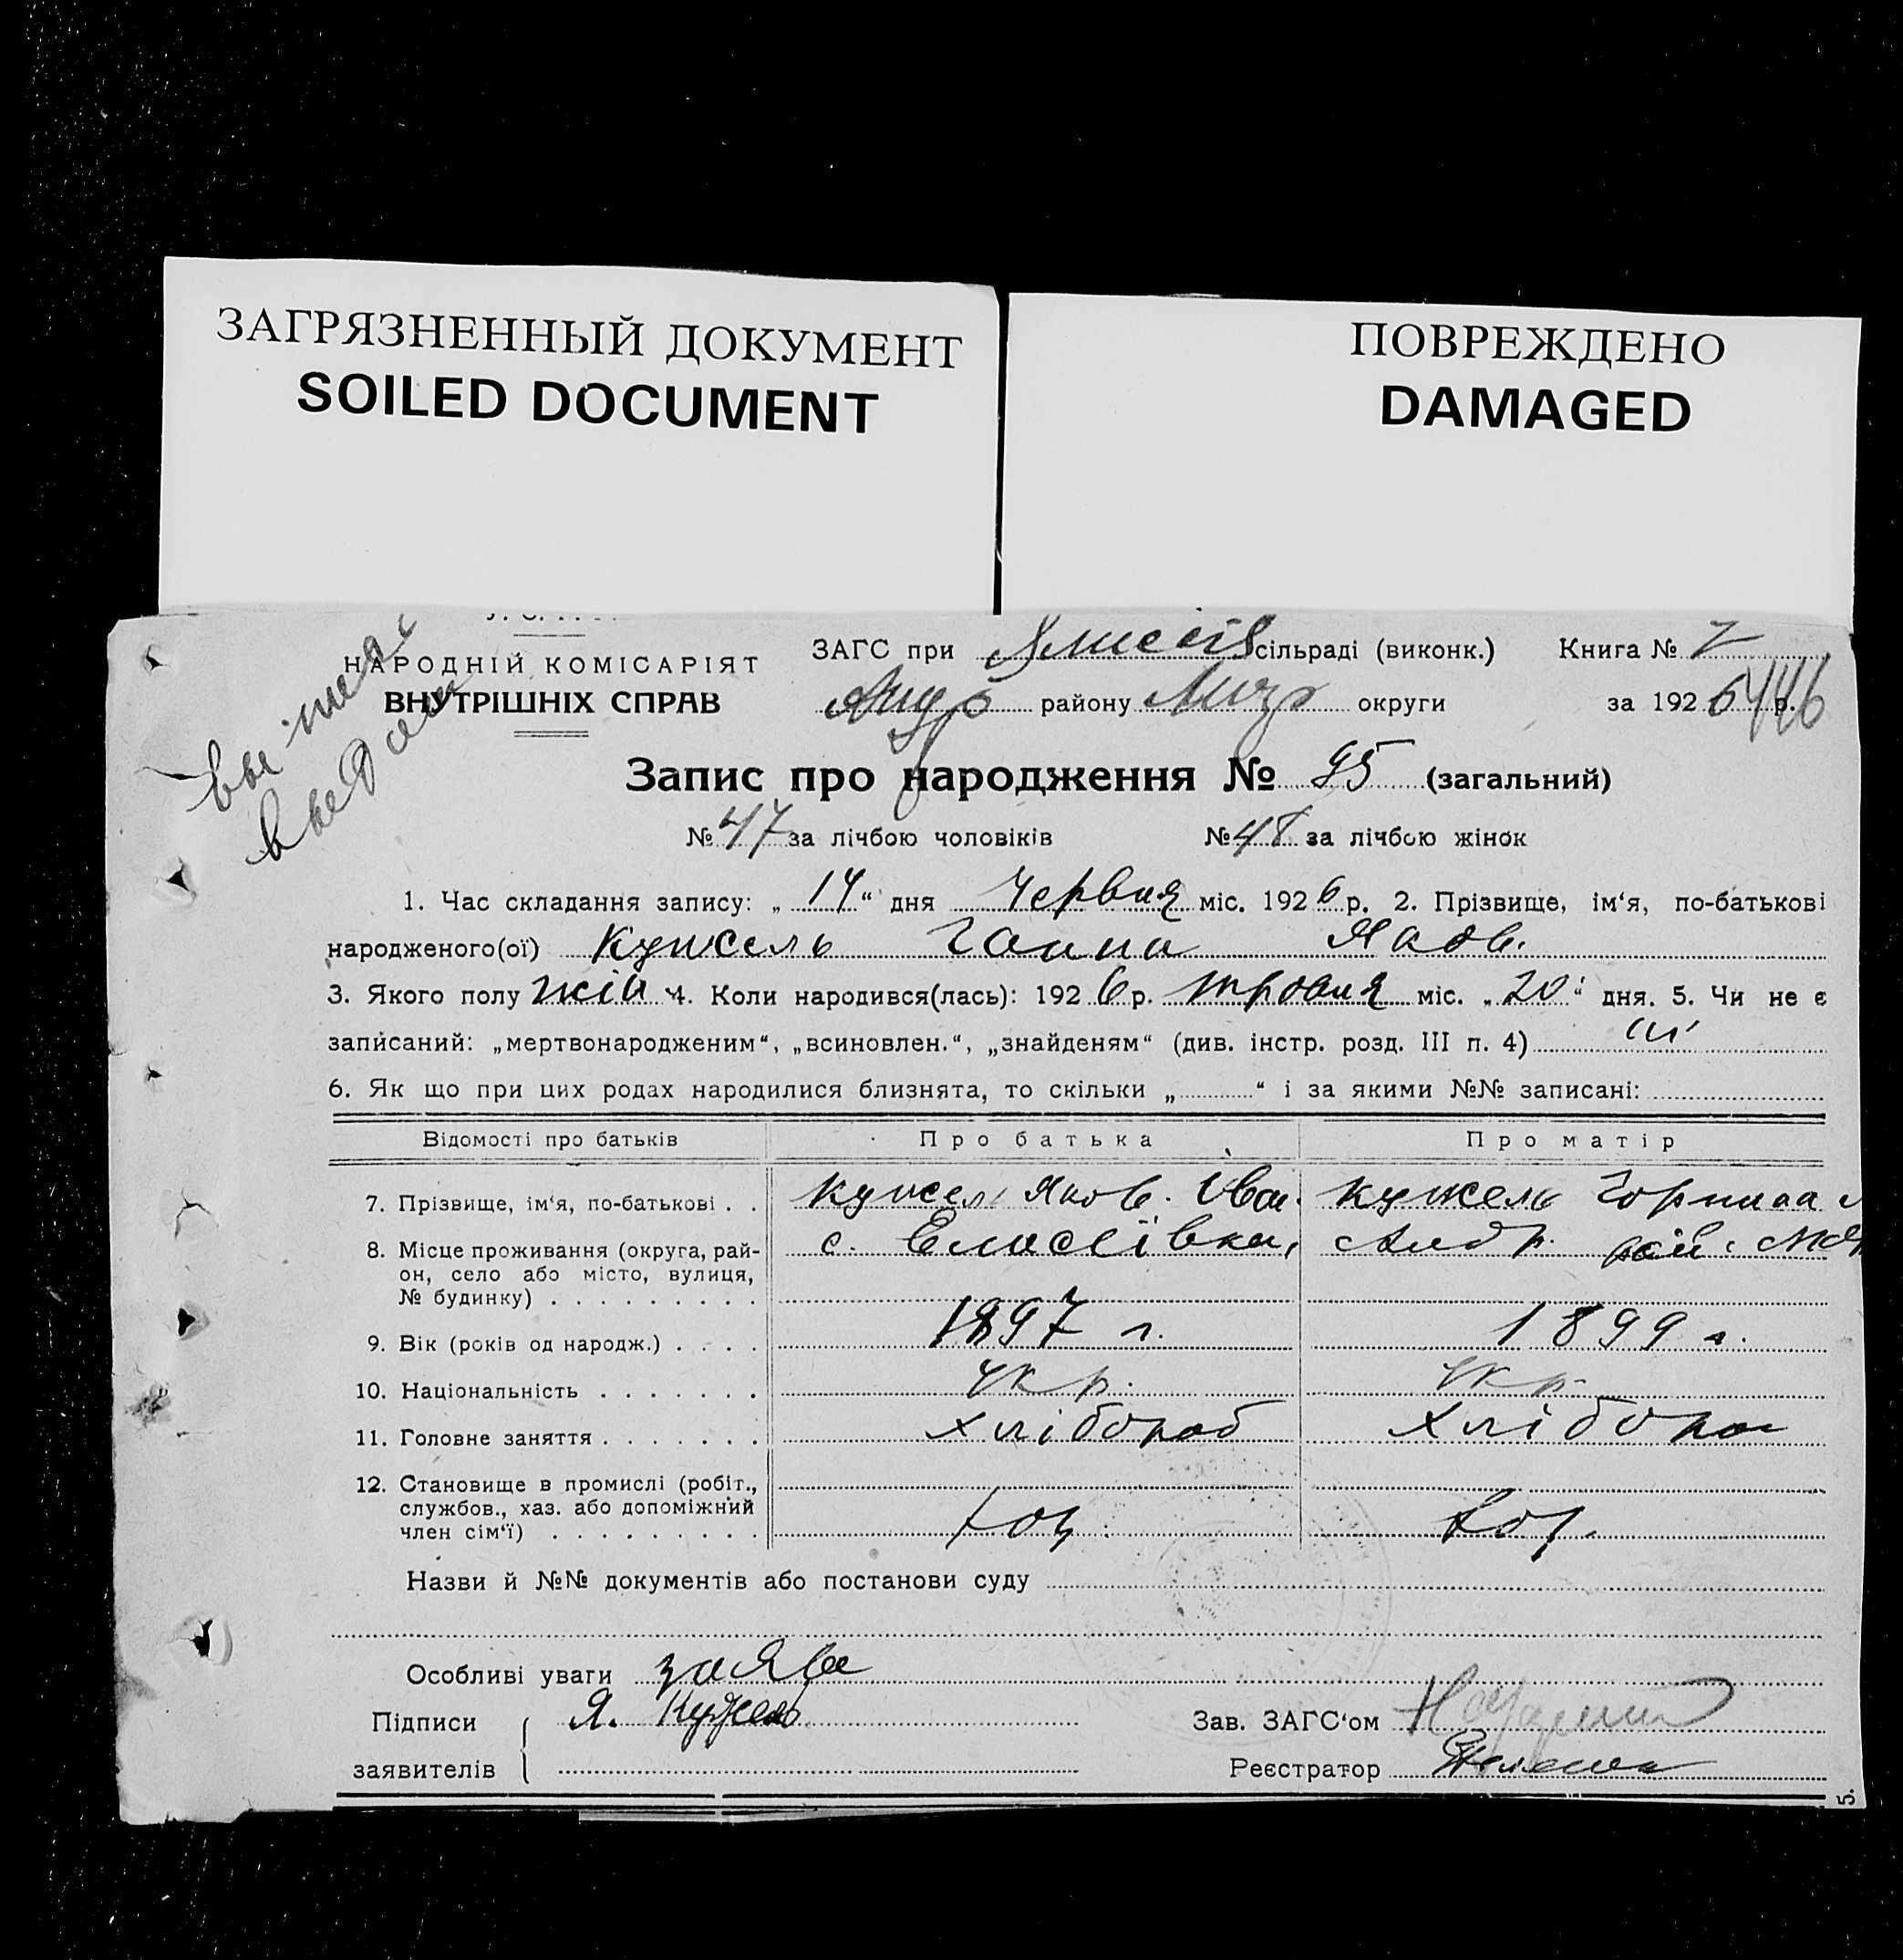 ЗАГРЯЗНЕННЫЙ ДОКУМЕНТ
SOILED DOCUMENT
ПОВРЕЖДЕНО
DAMAGED
НАРОДНІЙ КОМІСАРІЯТ
ВНУТРІШНІХ СПРАВ
ЗАГС при сільраді (виконк.) Книга №
району округи за 1926 р.
Запис про народження № 95 (загальний)
№ 47 за лічбою чоловіків № 48 за лічбою жінок
1. Час складання запису: „14“ дня Червня міс. 1926 р. 2. Прізвище, ім‘я, по-батькові
народженого(ої) Кужель Ганна Яков.
3. Якого полу жін 4. Коли народився(лась): 1926 р. травня міс. „20“ дня. 5. Чи не є
записаний: „мертвонародженим“, „всиновлен.“, „знайденям“ (див. інстр. розд. III п. 4) ні
6. Як що при цих родах народилися близнята, то скільки „ “ і за якими №№ записані:
Відомості про батьків Про батька Про матір
7. Прізвище, ім‘я, по-батькові . . Кужель Яков. Іван. Кужель
8. Місце проживання (округа, рай-он, село або місто, вулиця, № будинку) . . . . . . . . . с. Єлисеївка, Андр. рай.
9. Вік (років од народж.) . . . . 1897 г. 1899 г.
10. Національність . . . . . . . Укр. Укр.
11. Головне заняття . . . . . . . хлібороб хлібороб
12. Становище в промислі (робіт.,
службов., хаз. або допоміжний
член сім‘ї) . . . . . . . . .
Назви й №№ документів або постанови суду
Особливі уваги заява
Підписи Я. Кужель Зав. ЗАГС‘ом
заявителів Реєстратор
5.